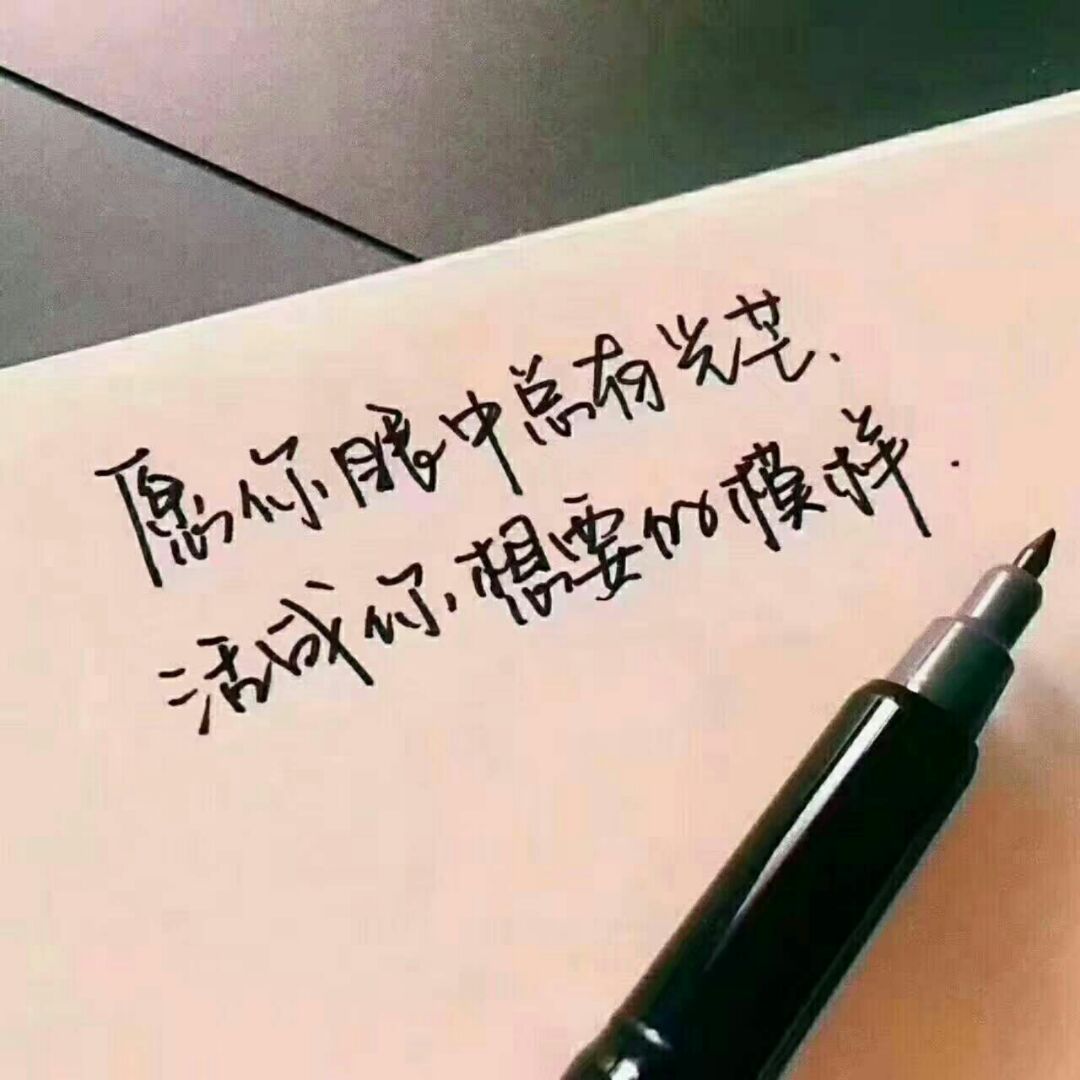 愿你眼中总有光芒.
活成你想要的模样.